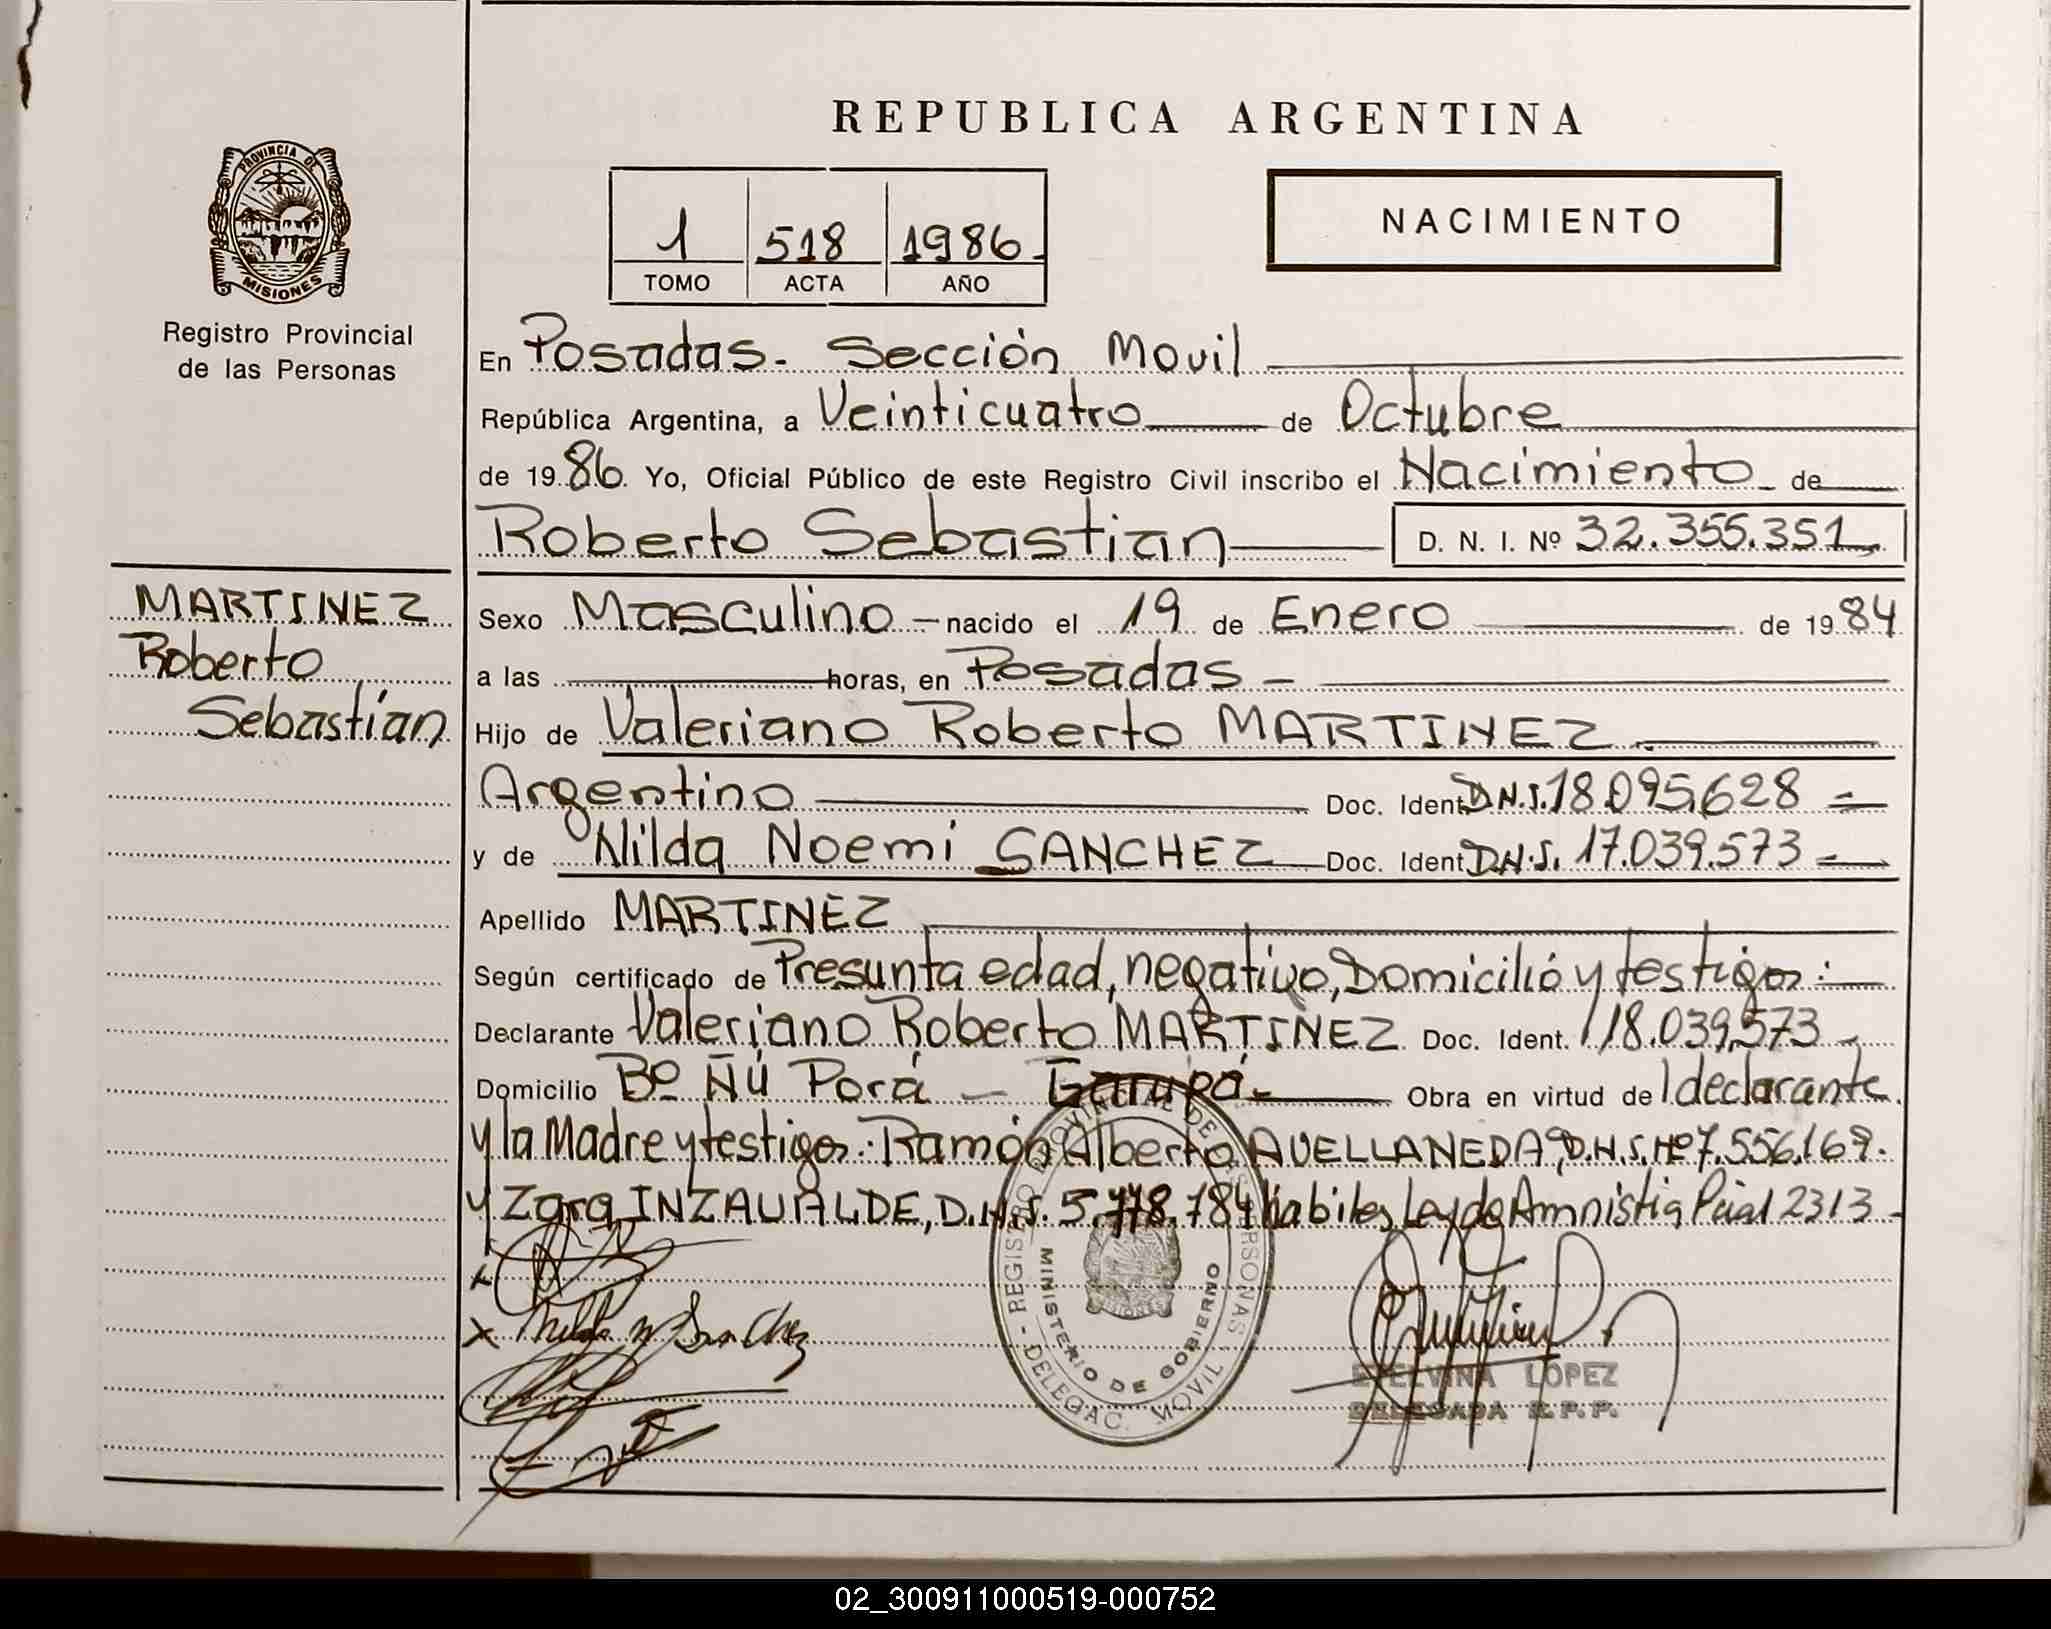 REPUBLICA ARGENTINA
PROVINCIA DE
MISIONES
Registro Provincial
de las Personas
1 518 1986
TOMO ACTA AÑO
NACIMIENTO
En Posadas - Sección Movil
República Argentina, a Veinticuatro de Octubre
de 1986. Yo, Oficial Público de este Registro Civil inscribo el Nacimiento de
Roberto Sebastian D. N. I. Nº 32.355.351
MARTINEZ
Roberto
Sebastían
Sexo Masculino - nacido el 19 de Enero de 1984
a las horas, en Posadas -
Hijo de Valeriano Roberto MARTINEZ
Argentino Doc. Ident D.N.I. 18.095.628 =
y de Nilda Noemi SANCHEZ Doc. Ident D.N.I. 17.039.573
Apellido MARTINEZ
Según certificado de Presunta edad, negativo, Domicilio y testigos:
Declarante Valeriano Roberto MARTINEZ Doc. Ident. 18.039.573
Domicilio Bº Ñú Porá - Garupá Obra en virtud de declarante
y la Madre y testigos: Ramón Alberto AVELLANEDA, D.N.I. Nº 7.556.169.
y Zara INZAUALDE, D.N.I. 5.778.784 habiles, Ley de Amnistia Pcial 2313
x
x Nilda N Sanchez
REGISTRO PROVINCIAL DE PERSONAS - DELEGAC. MOVIL
MINISTERIO DE GOBIERNO
ETELVINA LOPEZ
DELEGADA R.P.P.
02_300911000519-000752